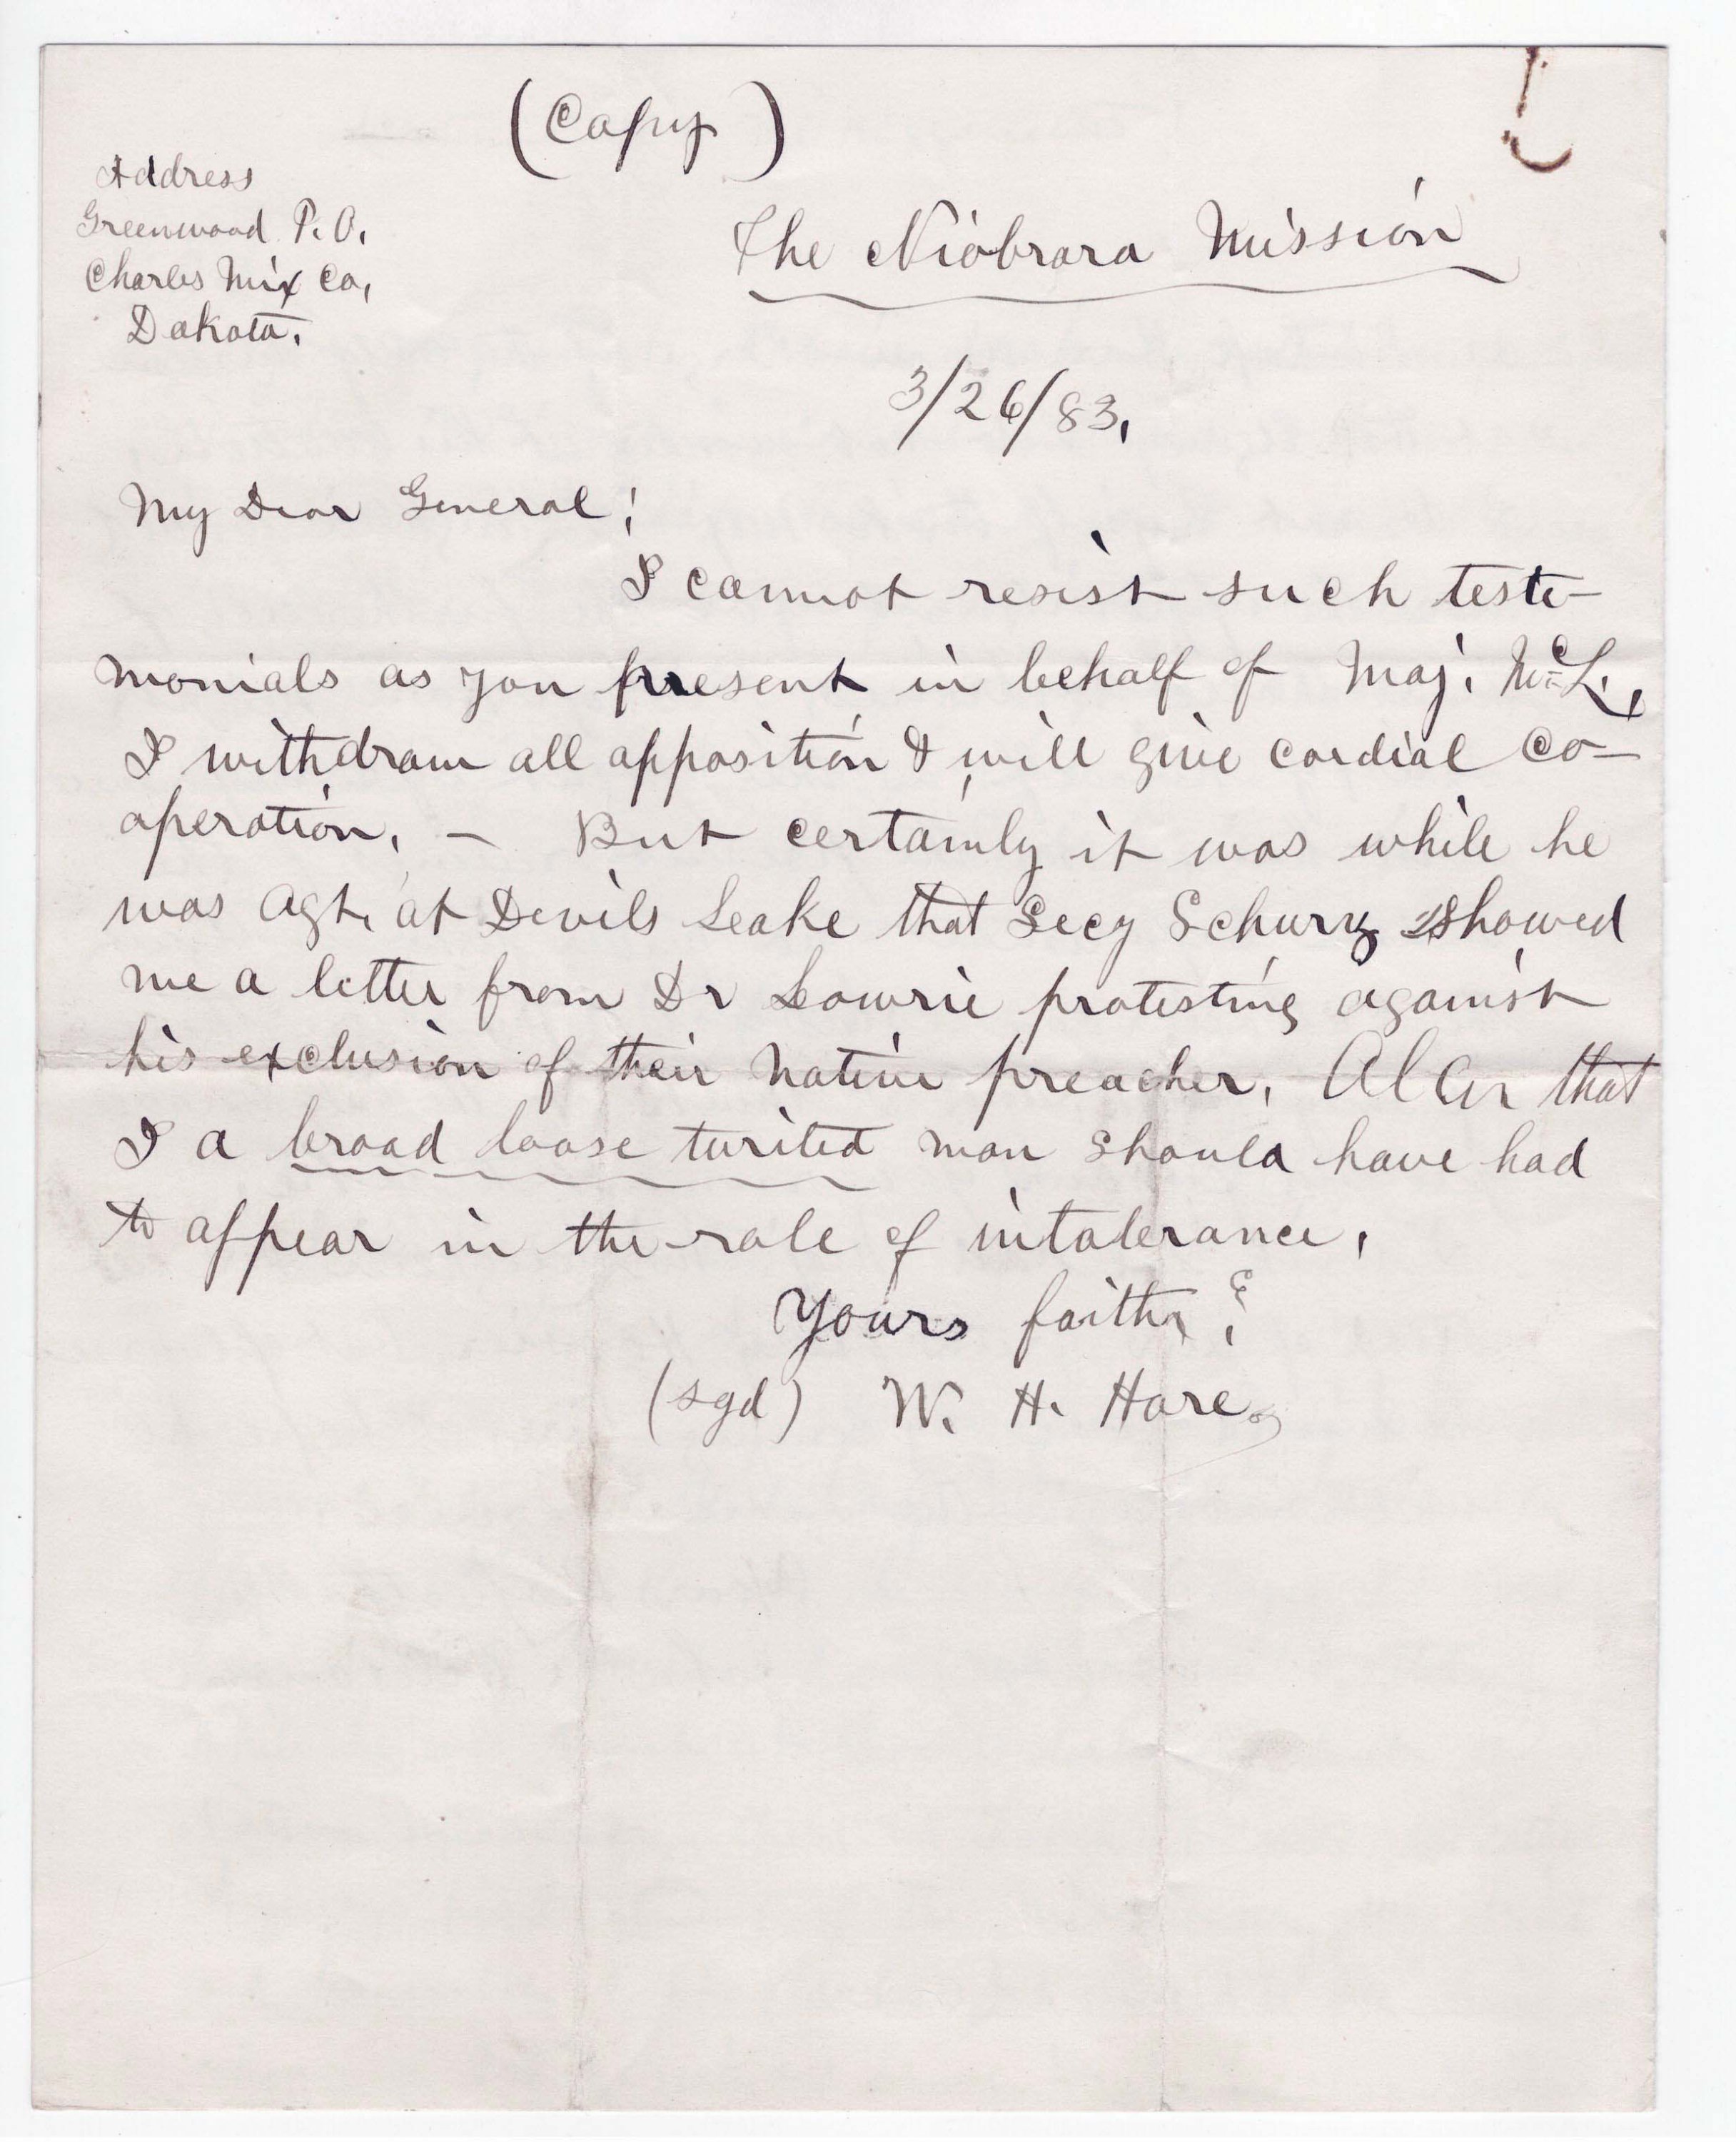 (Copy)
Address
Greenwood P. O.,
Charles Mix Co,
Dakota.
The Niobrara Mission
3/26/83,
My Dear General;
I cannot resist such testi-
monials as you present in behalf of Maj. McL.,
I withdraw all opposition & will give cordial co-
operation, – But certainly it was while he
was Agt, at Devils Leake that Secy Schurz showed
me a letter from Dr Lowrie protesting against
his exclusion of their native preacher, that
I a broad loose man should have had
to appear in the role of intolerance,
Yours faith
(sgd) W. H. Hare.